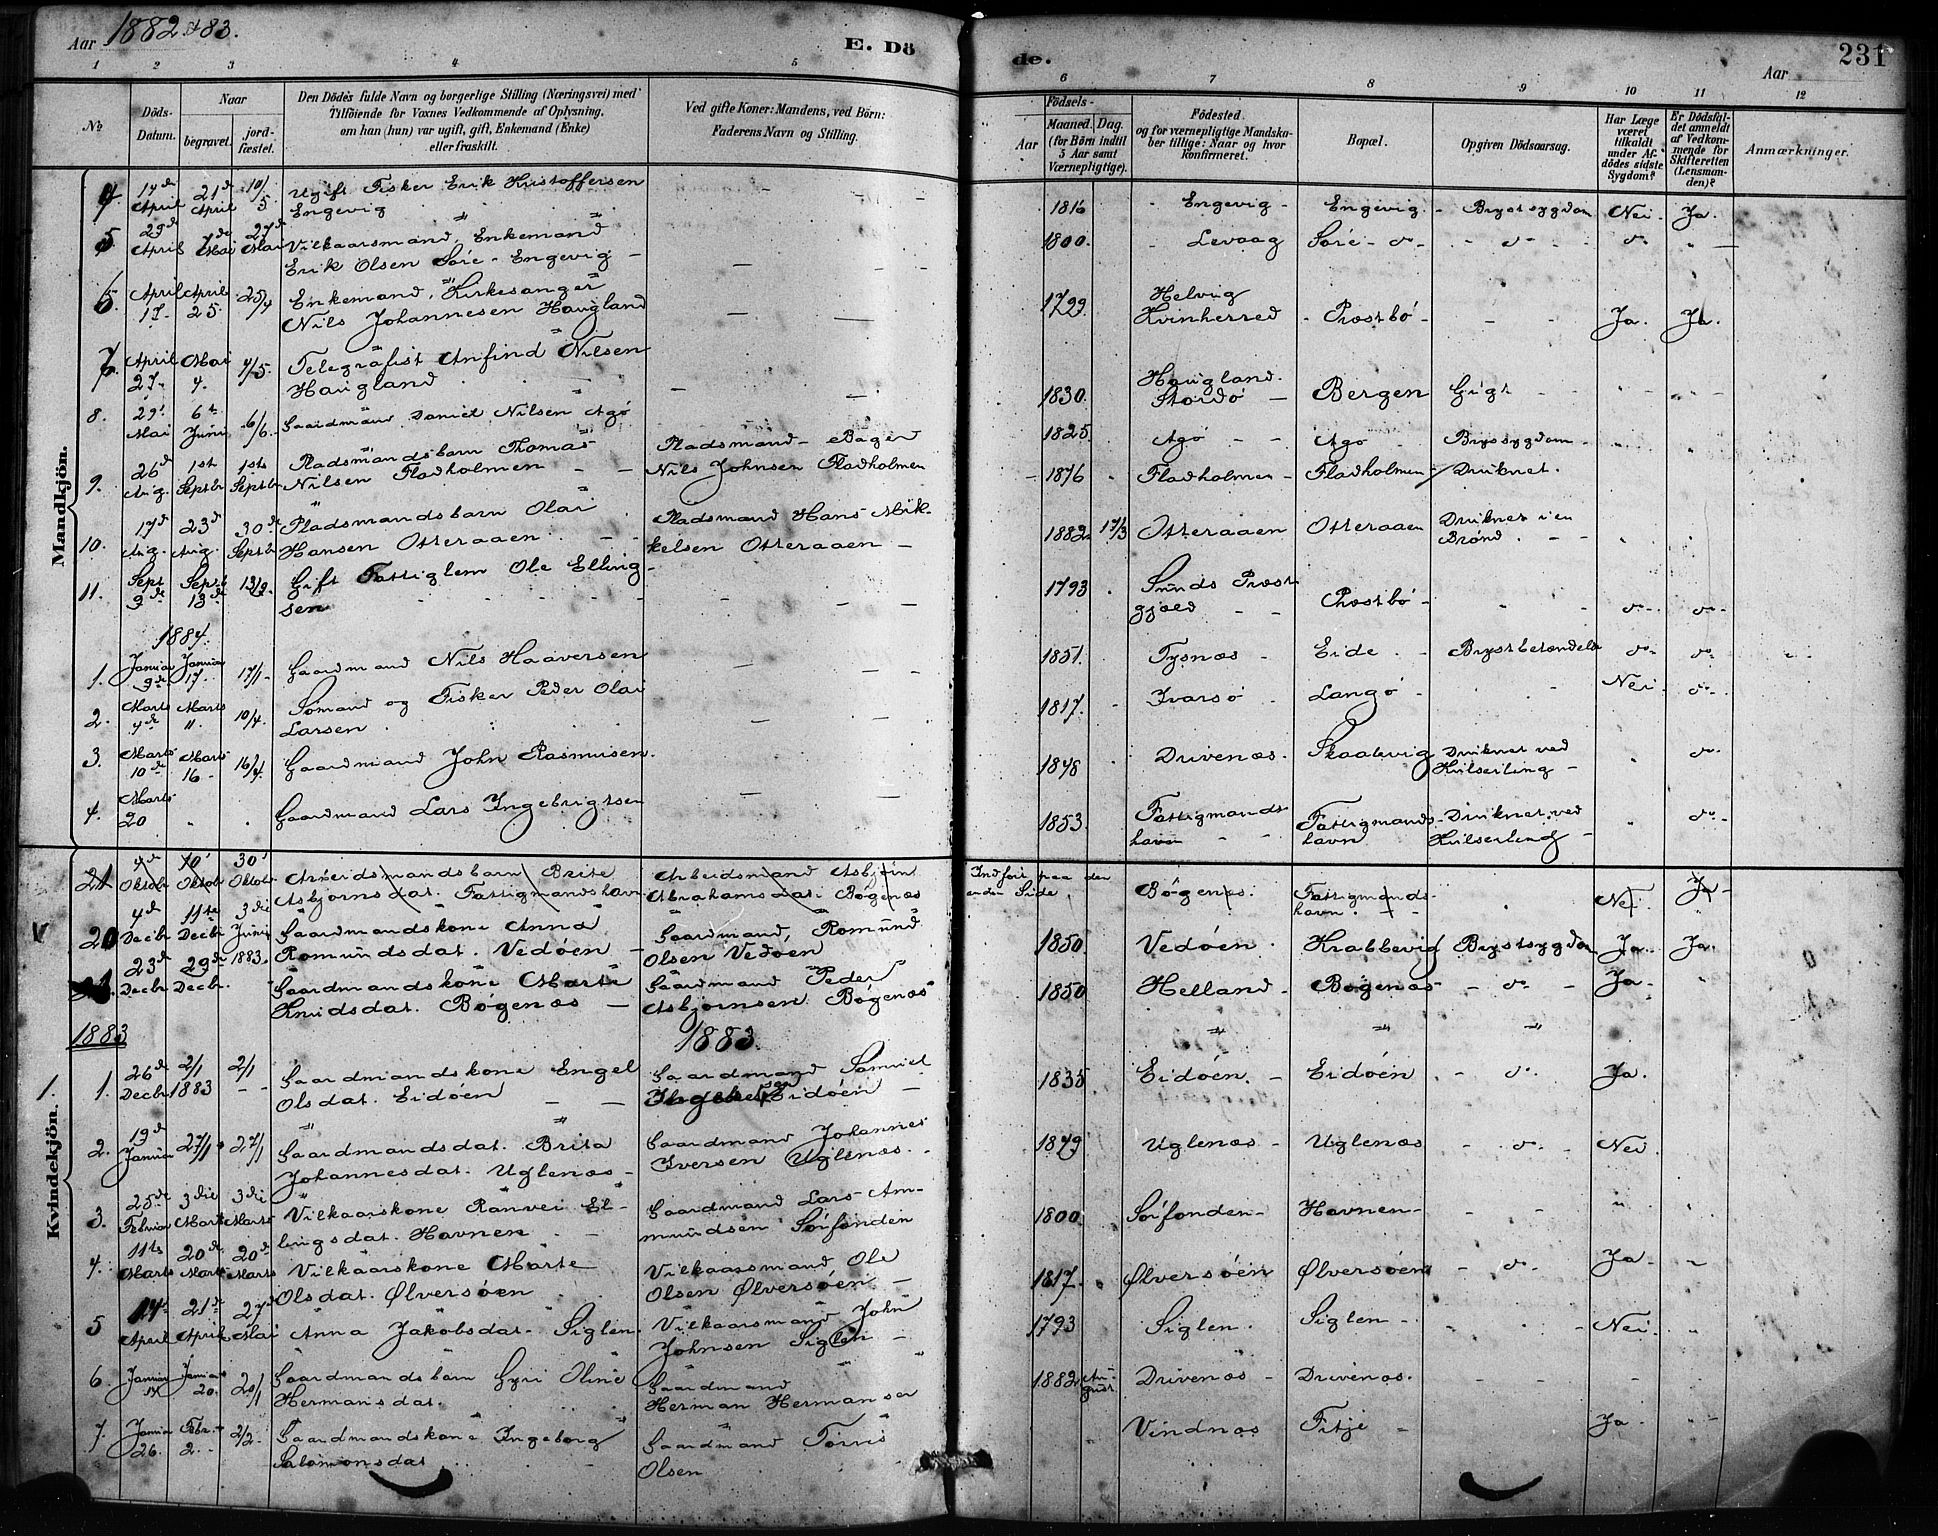 Aar 1882 & 83.
E. Dö
de.
Aar
231
1 2 3 4 5 6 7 8 9 10 11 12
No
Döds-
Datum.
Naar
begravet.
jord-
fæstet.
Den Dödes fulde Navn og borgerlige Stilling (Næringsvei) med
Tilföiende for Voxnes Vedkommende af Oplysning,
om han (hun) var ugift, gift, Enkemand (Enke)
eller fraskilt.
Ved gifte Koner: Mandens, ved Börn:
Faderens Navn og Stilling.
Födsels-
Aar
Maaned. Dag.
(for Börn indtil
5 Aar samt
Værnepligtige).
Födested
og for værnepligtige Mandska-
ber tillige: Naar og hvor
konfirmeret.
Bopæl.
Opgiven Dödsaarsag.
Har Læge
været
tilkaldt
under Af-
dödes sidste
Sygdom?
Er Dödsfal-
det anmeldt
af Vedkom-
mende for
Skifteretten
(Lensman-
den)?
Anmærkninger.
Mandkjön.
4 14de April 21de April 10/5 Ugift Fisker Erik Kristoffersen
Engevig 1816 Engevig Engevig Brystsygdom Nei Ja
5. 29de April 7de Mai 27de Mai Vilkaarsmand, Enkemand
Erik Olsen Søre-Engevig 1800. Levaag Søre do do do
6. April 17. April 25. 25/4 Enkemand, Kirkesanger
Nils Johannesen Haugland 1799 Helvig
Kvinherred Præstbø Ja. Ja.
7. April 27. Mai 4. 4/5. Telegrafist Anfind Nilsen
Haugland 1830. Haugland
Stordø Bergen Gigt
8. 29. Mai 6te Juni 6/6 Gaardmand Daniel Nilsen Agø 1825. Agø Agø Brystsygdom
9. 26de Aug. 1ste Septbr 1ste Septbr Pladsmandsbarn Thomas
Nilsen Fladholmen
Pladsmand Bager
Nils Johnsen Fladholmen 1876 Fladholmen Fladholmen Druknet.
10. 17de Aug. 23de Aug. 30de Septbr Pladsmandsbarn Olai
Hansen Otteraaen
Pladsmand Hans Mik-
kelsen Otteraaen 1882 17/3 Otteraaen Otteraaen Druknet i en
Brønd.
11. Sept 9de Sept. 13de 13/9. Gift Fattiglem Ole Elling-
sen 1793 Sunds Præst
gjæld Præstbø do do
1884.
1. Januar 9de Januar 17. 17/1 Gaardmand Nils Haaversen 1851. Tysnæs Eide Brystbetændelse do do
2. Marts 4de Marts 11. 10/4. Sømand og Fisker Peder Olai
Larsen 1817. Ivarsø Langø Nei do
3. Marts 10de Marts 16 16/4. Gaardmand John Rasmusen. 1848 Drivenæs. Skaalevig Druknet ved
Kulseiling do
4. Marts 20 Gaardmand Lars Ingebrigtsen 1853. Fattigmands
havn Fattigmands-
havn Druknet ved
Kulseiling do
Kvindekjön.
21 4de Oktobr 10 Oktobr 30 Oktobr Arbeidsmandsbarn Brite
Asbjørnsdat. Fattigmandshavn
Arbeidsmand Asbjørn
Abrahamsdat. Bøgenæs
Indført paa den
anden Side, Bøgenæs. Fattigmands-
havn. Nei Ja
V 20 4de Decbr 11te Decbr 3die Juni 1883. Gaardmandskone Anna
Romundsdat. Vedøen
Gaardmand, Romund
Olsen Vedøen 1850 Vedøen Krabbevig Brystsygdom Ja Ja
21. 23de Decbr 29de Decbr. Gaardmandskone Marte
Knudsdat. Bøgenæs
Gaardmand Peder
Asbjørnsen Bøgenæs 1850 Helland Bøgenæs do Ja
1883
1883.
1. 26de Decbr 2/1 1883 2/1 Gaardmandskone Engel
Olsdat. Eidøen
Gaardmand Samuel
Eidøen 1835 Eidøen. Eidøen do Ja.
2. 19de Januar 27/1 27/1 Gaardmandsdat. Brita
Johannesdat. Uglenæs
Gaardmand Johannes
Iversen Uglenæs. 1879 Uglenæs Uglenæs do Nei
3. 25de Februar 3die Marts 3die Marts Vilkaarskone Ranvei El-
lingsdat. Havnen
Gaardmand Lars Am-
mundsen Søifonden 1800. Søifonden Havnen
4. 11te Marts 20de Marts 20de Marts Vilkaarskone Marte
Olsdat. Ølversøen
Vilkaarsmand Ole
Olsen Ølversøen 1817. Ølversøen Ølversøen do Ja
5 14de April 21de April 27de Mai Anna Jakobsdat. Siglen
Vilkaarsmand John
Johnsen Siglen 1793 Siglen. Siglen Nei
6. Januar 14 Januar 20. 20/1 Gaardmandsbarn Gyri Oline
Hermansdat.
Gaardmand
Herman Hermansen 1882 Au-
gust Drivenæs Drivenæs.
7. Januar 26. Febr. 2. 2/2. Gaardmandskone Ingeborg
Salomonsdat
Gaardmand Tørris
Olsen Vindnæs Fitje Ja